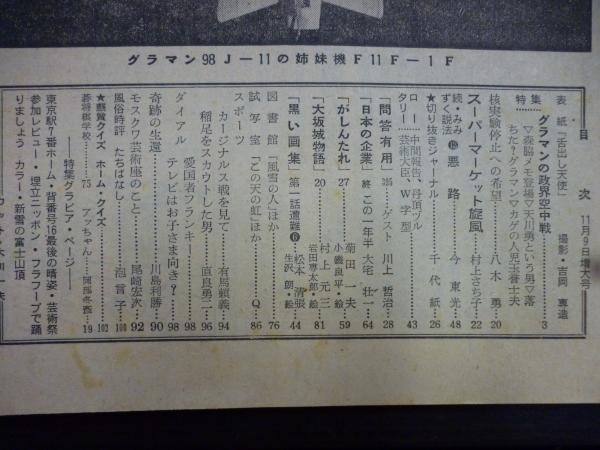 グラマン98J-11の姉妹機F11F-1F
目次 11月9日増大号
表紙「舌出し天使」 撮影・吉岡専造
特集 グラマンの政界空中戦……3
▽森脇メモ登場▽天川勇という男▽落
ちた?グラマン▽カゲの人児玉誉士夫
核実験停止への希望 八木勇…20
スーパーマーケット旋風 村上さち子…22
続・みみずく説法⑮ 悪路 今東光…48
★切り抜きジャーナル 千代紙…26
ロータリー 中間報告、丹頂ヅル 芸術大臣、W字型…43
「問答有用」 ゲスト 川上哲治…28
「日本の企業」 終 この一年半 大宅壮一…64
「がしんたれ」 27 菊田一夫 小磯良平・絵…59
「大坂城物語」 20 村上元三 岩田専太郎・絵…81
「黒い画集」 第一話遭難⑥ 松本清張 生沢朗・絵…44
図書館「風雪の人」ほか…76
試写室「この天の虹」ほか Q…86
スポーツ
カージナルス戦を見て 有馬頼義…94
稲尾をスカウトした男 直良勇二…96
愛国者フランキー…98
ダイアル テレビはお子さま向き?…98
奇跡の生還 川島利勝…90
モスクワ芸術座のこと 尾崎宏次…92
風俗時評 たちばなし 泡言子…100
★懸賞クイズ ホーム・クイズ…102
碁将棋学校…75 アッちゃん…岡部冬彦…19
――特集グラビア・ページ――
東京駅7番ホーム・背番号16最後の晴姿・芸術祭
参加レビュー・埋立ニッポン・フラフープで踊
りましょう カラー・新雪の富士山頂